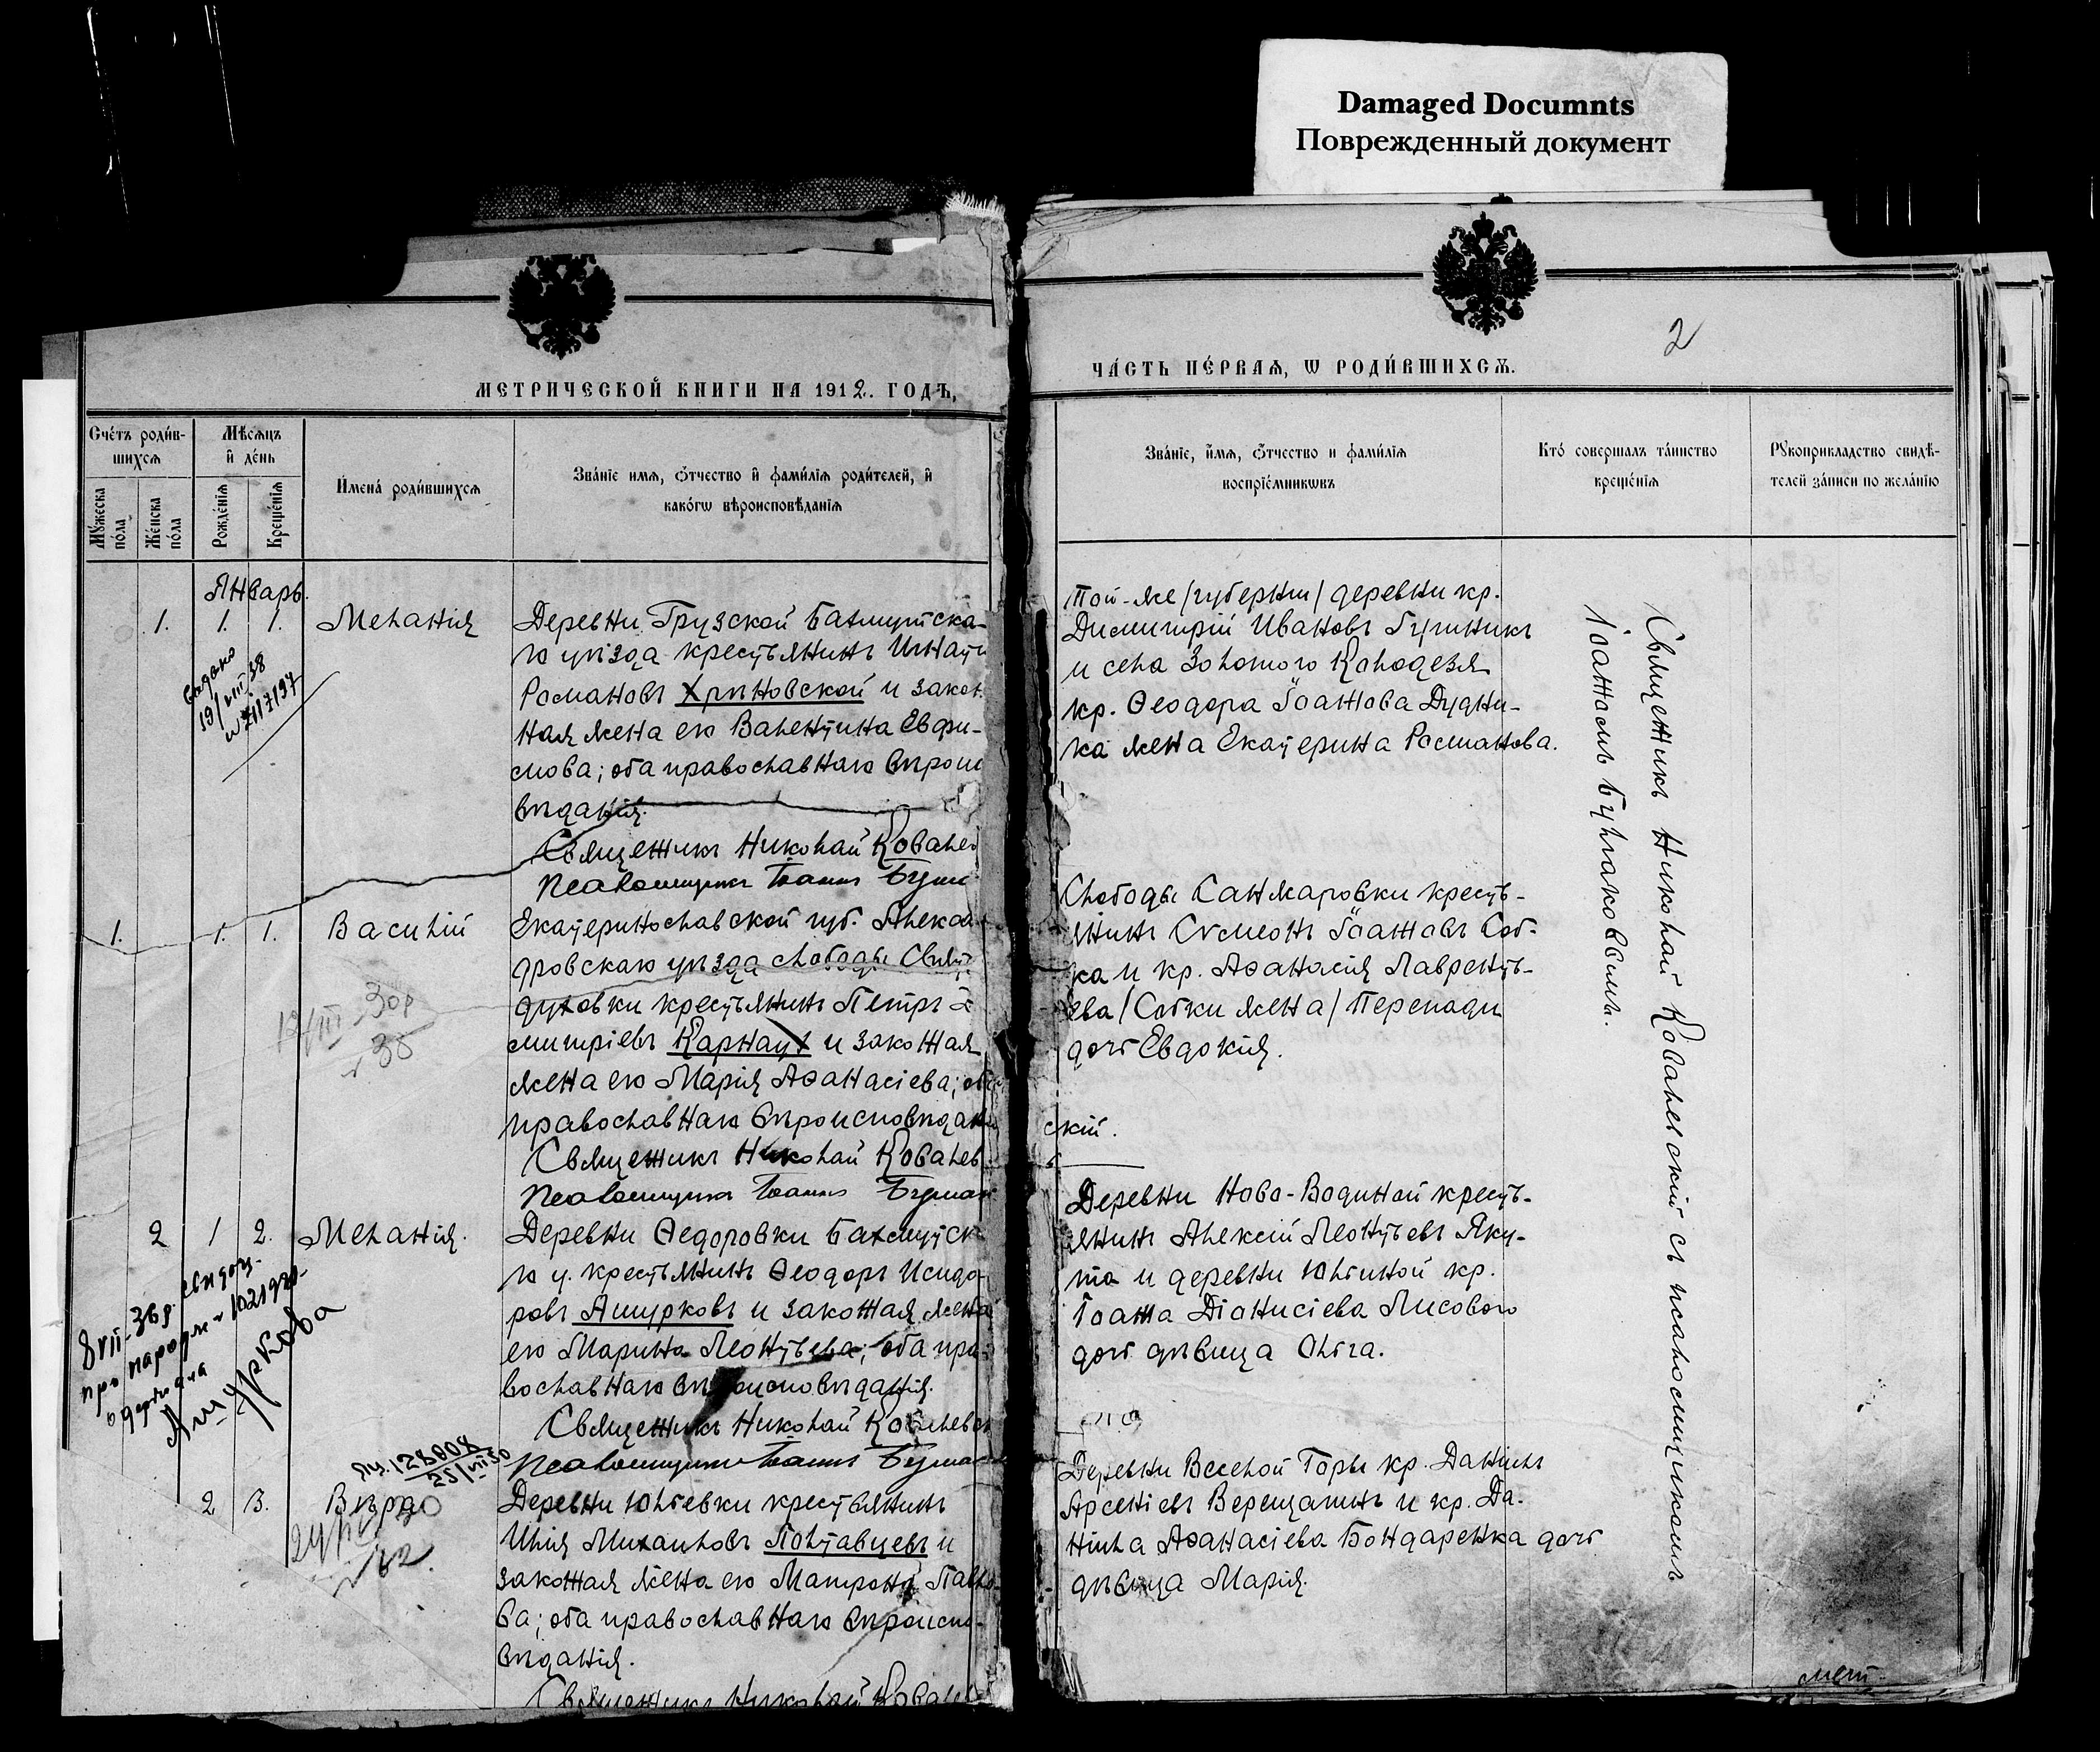 Damaged Documnts
Поврежденный документ
2
МЕТРИЧЕСКОЙ КНИГИ НА 1912. ГОДЪ,
ЧА́СТЬ ПЕ́РВАѦ, Ѡ РОДИ́ВШИХСѦ.
Сче́тъ роди́в-
шихсѧ
Мѣ́сѧцъ
и҆ де́нь
Му́жеска по́ла
Же́нска по́ла
Рожде́нїѧ
Креще́нїѧ
И҆мена́ роди́вшихсѧ
Зва́нїе имѧ, ѻ҆́тчество и҆ фами́лїѧ роди́телей, и҆
како́гѡ вѣроисповѣ́данїѧ
Зва́нїе, и҆́мѧ, ѻ҆́тчество и фами́лїѧ
воспрїе́мникѡвъ
Кто́ соверша́лъ та́инство
креще́нїѧ
Рꙋкоприкла́дство свидѣ́-
телей за́писи по жела́нїю
Январь.
1. 1. 1. Меланія
Деревни Грузской Бахмутска-
го уѣзда крестьянинъ Игнаті
Романовъ Хриновской и закон
ная жена его Валентина Евфи-
мова; оба православнаго вѣроис
вѣданія.
Священникъ Николай Ковалев
Псаломщикъ Іоаннъ
19/VIII 38
Той-же /губерніи/ деревни кр.
Димитрій Ивановъ
и села Золотого Колодезя
кр. Ѳеодора Іоаннова Дудни-
ка жена Екатерина Романова.
1. 1. 1. Василій
Екатеринославской губ. Алекса
дровскаго уѣзда слободы Свято
духовки крестьянинъ Петръ Д
митріевъ Карнаух и законная
жена его Марія Аѳанасіева; оба
православнаго вѣроисповѣдан
Священникъ Николай Ковалев
Псаломщикъ Іоаннъ
Слободы Санжаровки кресть-
янинъ Сѵмеонъ Іоанновъ Соб-
ка и кр. Аѳанасія Лавренть-
ева /Собки жена/ Перепади
дочь Евдокія.
скій.
2 1 2. Меланія.
Деревни Ѳедоровки Бахмутск
го у. крестьянинъ Ѳеодоръ Исидо
ровъ Ашурковъ и законная жена
его Марина Леонтьева; оба пра
вославнаго вѣроисповѣданія.
Священникъ Николай Ковалевс
Псаломщикъ Іоаннъ
Ашуркова
Деревни Ново-Водиной кресть-
янинъ Алексій Леонтьевъ Яку-
та и деревни Юльиной кр.
Іоанна Діонисіева Лисового
дочь дѣвица Ольга.
128008
25/VII 50
2 3. Вѣра
Деревни Юльевки крестьянинъ
Илія Михаиловъ Полтавцевъ и
законная жена его Матрона Павло-
ва; оба православнаго вѣроиспо-
вѣданія.
Священникъ Николай Ковалев
Деревни Веселой Горы кр. Даніилъ
Арсеніевъ Верещагинъ и кр. Да-
ніила Аѳанасіева Бондаренка дочь
дѣвица Марія.
Священникъ Николай Ковалевскій съ псаломщикомъ
Іоанномъ Булгаковымъ.